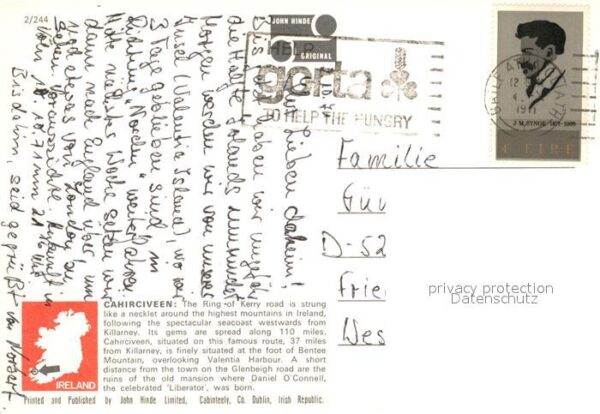 2/244
JOHN HINDE
ORIGINAL
HELP
gorta
TO HELP THE HUNGRY
BAILE ÁTHA CLIATH
1971
J.M. SYNGE 1871-1909
4 EIRE
Ihr Lieben daheim!
Bis jetzt haben wir ungefähr
die Hälfte Irlands umrundet
Morgen werden wir von unserer
Insel (Valentia Island), wo wir
3 Tage geblieben sind in
Richtung "Norden" weiterfahren.
Mitte nächster Woche setzen wir
dann nach England über, um
noch etwas von London zu
sehen. Voraussichtl. Ankunft in
Köln 18.10.71 um 21 16 Uhr
Bis dahin, seid gegrüßt von Norbert
Familie
D-52
Wes
privacy protection
Datenschutz
IRELAND
CAHIRCIVEEN: The Ring of Kerry road is strung
like a necklet around the highest mountains in Ireland,
following the spectacular seacoast westwards from
Killarney. Its gems are spread along 110 miles.
Cahirciveen, situated on this famous route, 37 miles
from Killarney, is finely situated at the foot of Bentee
Mountain, overlooking Valentia Harbour. A short
distance from the town on the Glenbeigh road are the
ruins of the old mansion where Daniel O'Connell,
the celebrated 'Liberator', was born.
Printed and Published by John Hinde Limited, Cabinteely, Co. Dublin, Irish Republic.